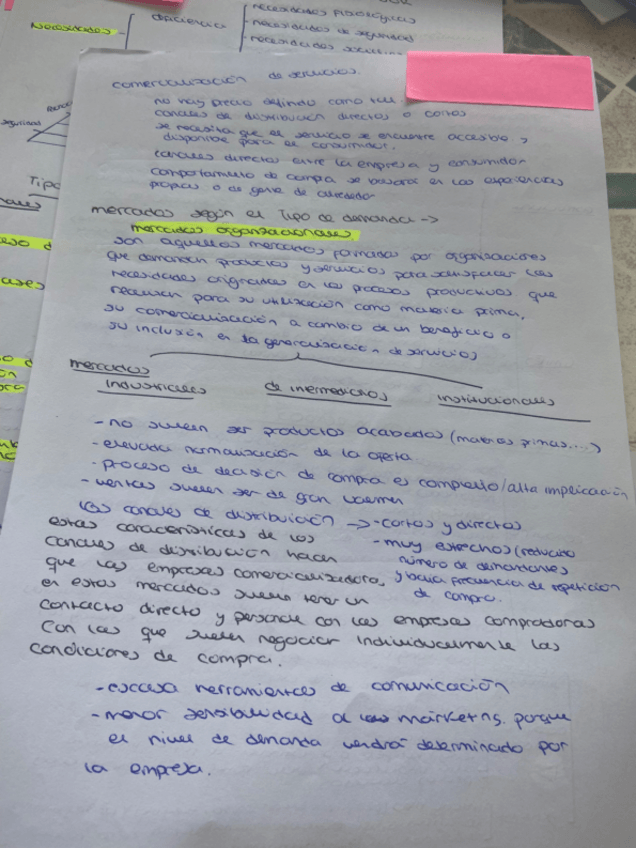 Necesidades
deficiencia
necesidades fisiológicas
- necesidades de seguridad
- necesidades
seguridad
Tipo
comercialización de servicios.
no hay precio definido como tal.
canales de distribución directos o cortos
se necesita que el servicio se encuentre accesible y
disponible para el consumidor.
canales directos entre la empresa y consumidor
comportamiento de compra se basará en las experiencias
propias o de gente de alrededor
mercados según el tipo de demanda ->
mercados organizacionales.
son aquellos mercados formados por organizaciones
que demandan productos y servicios para satisfacer las
necesidades originadas en los procesos productivos que
necesitan para su utilización como materia prima,
su comercialización a cambio de un beneficio o
su inclusión en la generalización de servicios
mercados
industriales de intermediarios institucionales
- no suelen ser productos acabados (materias primas....)
- elevada normalización de la oferta
- proceso de decisión de compra es complejo/alta implicación
- ventas suelen ser de gran volumen
los canales de distribución -> - cortos y directos
- muy estrechos (reducido
número de demandantes
y baja frecuencia de repetición
de compra.
estas características de los
canales de distribución hacen
que las empresas comercializadoras
en estos mercados suelen tener un
contacto directo y personal con las empresas compradoras
con las que suelen negociar individualmente las
condiciones de compra.
- escasa herramientas de comunicación
- menor sensibilidad al marketing porque
el nivel de demanda vendrá determinado por
la empresa.